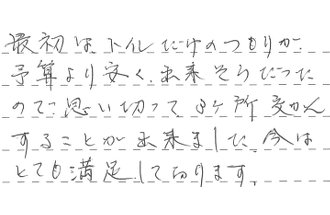 最初は、トイレだけのつもりが、
予算より安く、出来そうだった
ので、思い切って、3ヶ所 交かん
することが出来ました。今は
とても満足しております。